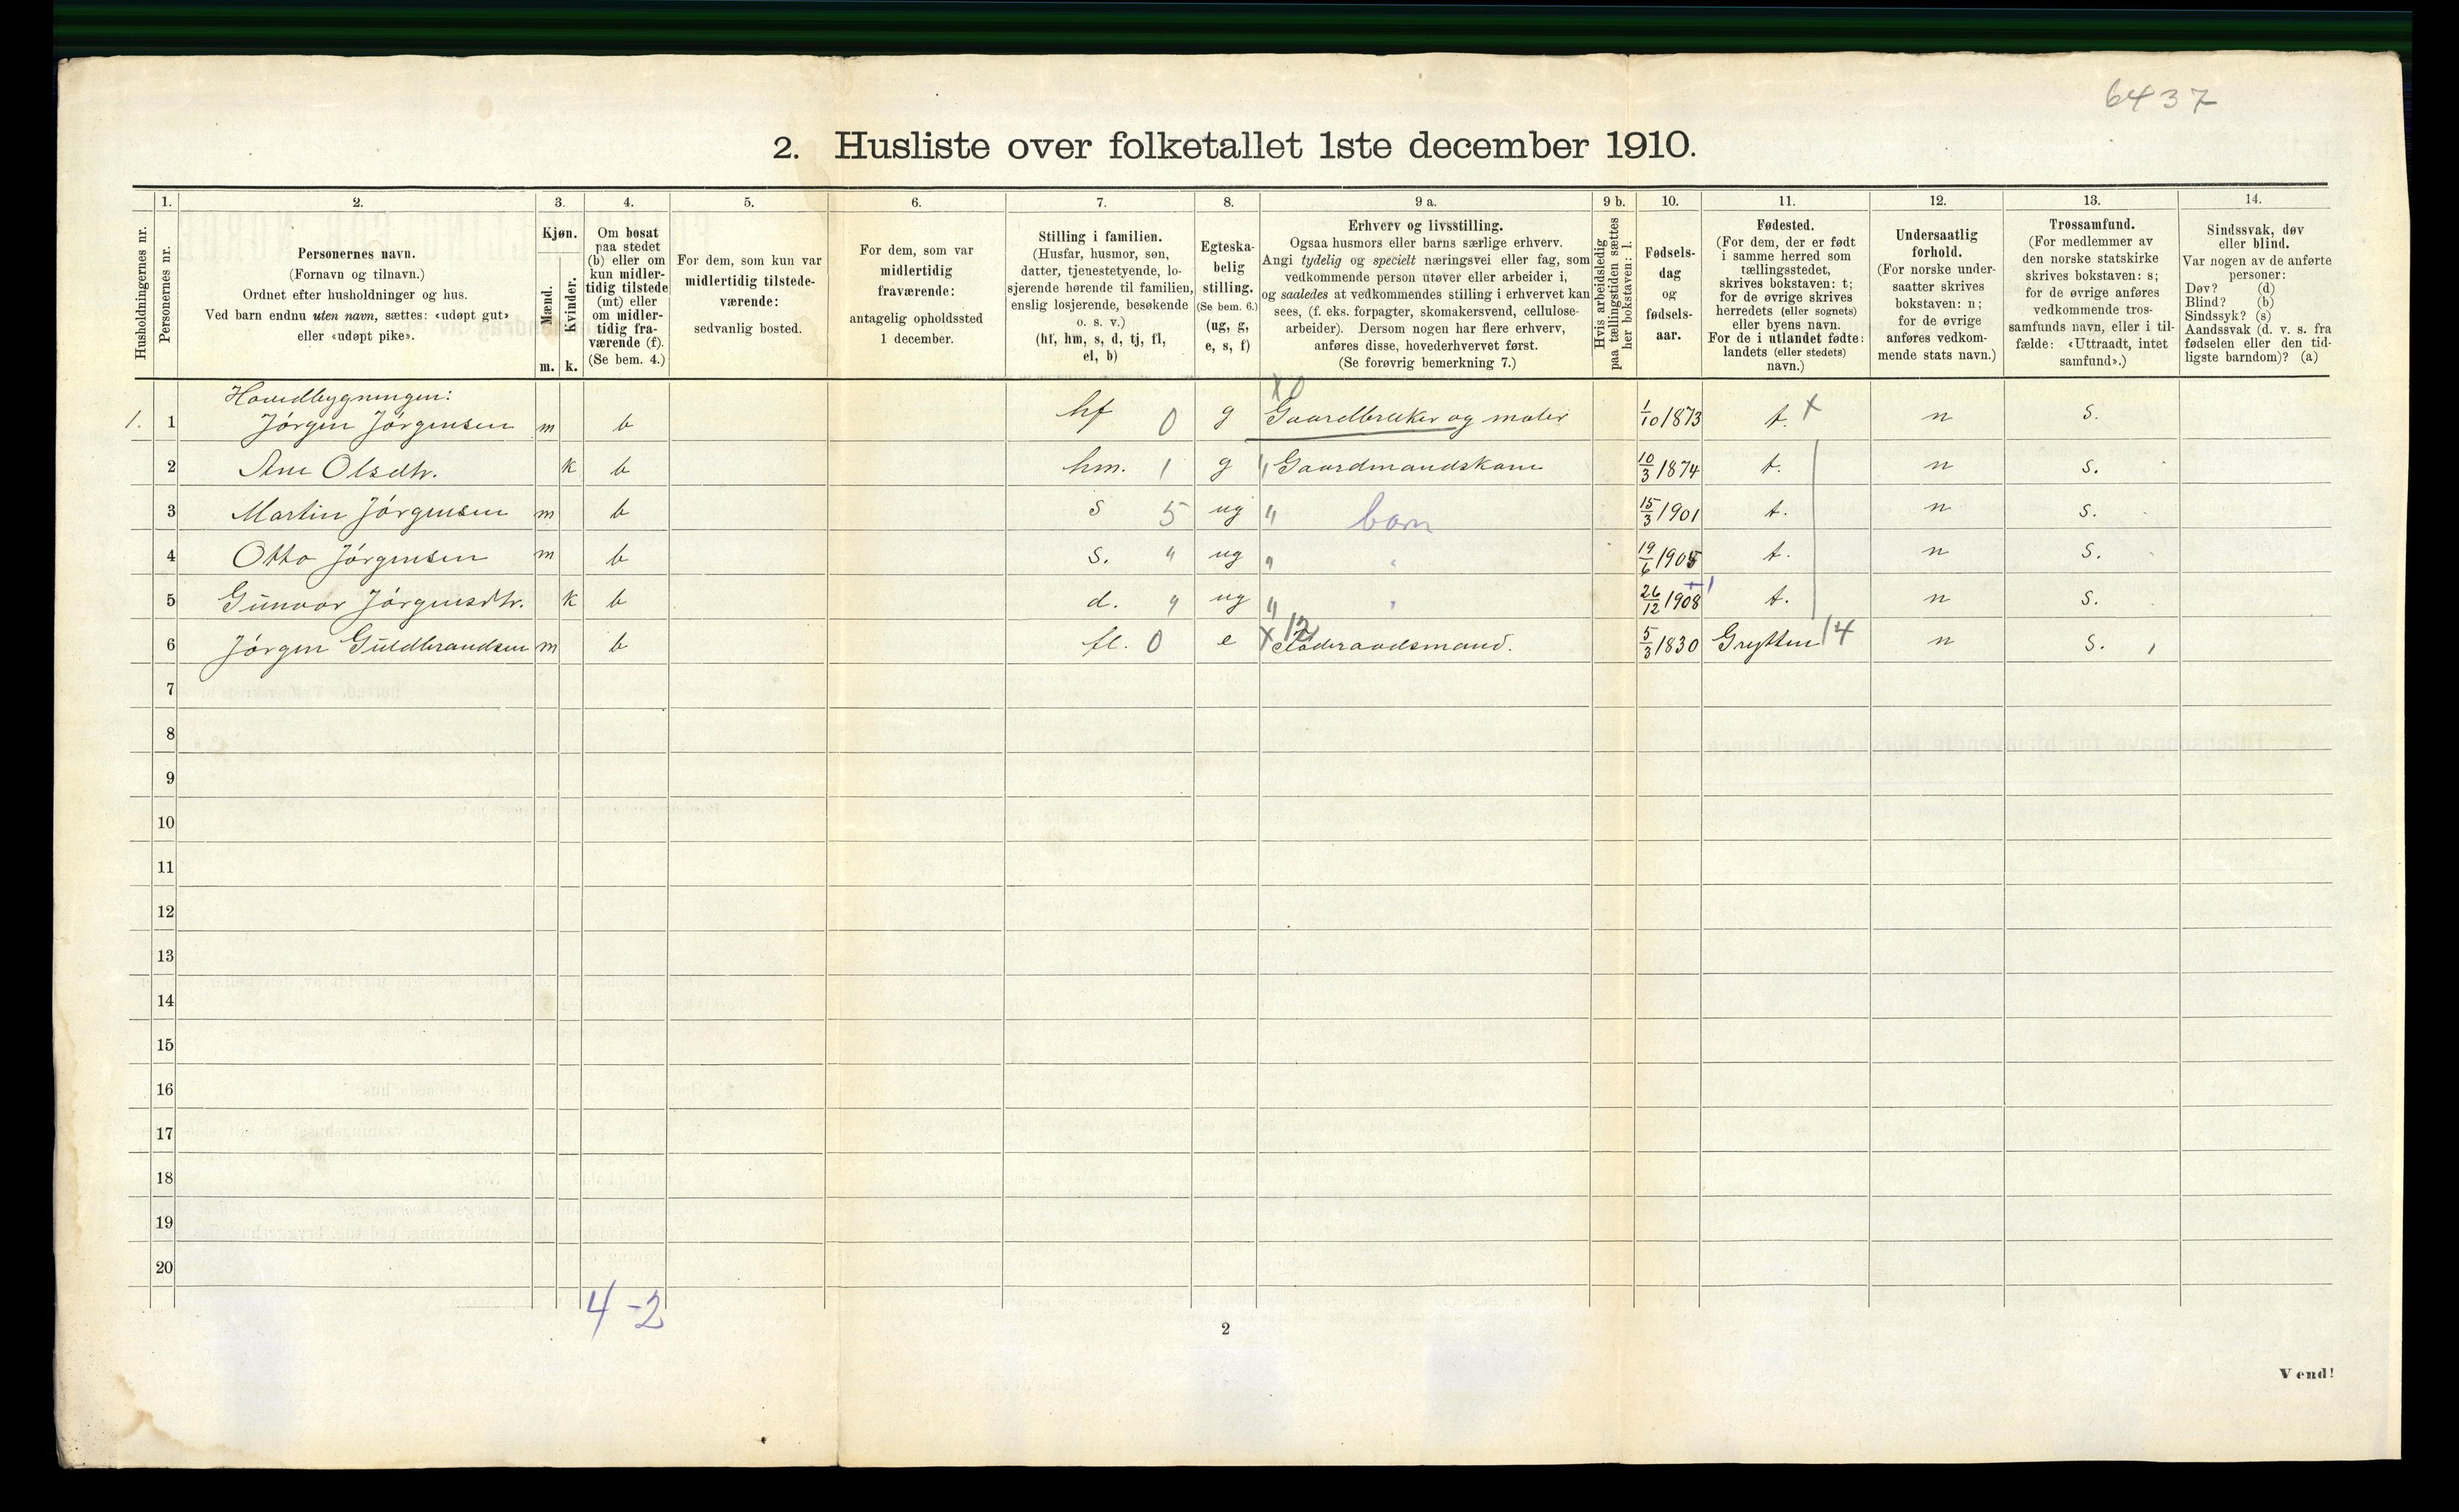 6437
2. Husliste over folketallet 1ste december 1910.
Husholdningernes nr.
1.
Personernes nr.
2.
Personernes navn.
(Fornavn og tilnavn.)
Ordnet efter husholdninger og hus.
Ved barn endnu uten navn, sættes: «udøpt gut»
eller «udøpt pike».
3.
Kjøn.
Mænd.
Kvinder.
m. k.
4.
Om bosat
paa stedet
(b) eller om
kun midler-
tidig tilstede
(mt) eller
om midler-
tidig fra-
værende (f).
(Se bem. 4.)
5.
For dem, som kun var
midlertidig tilstede-
værende:
sedvanlig bosted.
6.
For dem, som var
midlertidig
fraværende:
antagelig opholdssted
1 december.
7.
Stilling i familien.
(Husfar, husmor, søn,
datter, tjenestetyende, lo-
sjerende hørende til familien,
enslig losjerende, besøkende
o. s. v.)
(hf, hm, s, d, tj, fl,
el, b)
8.
Egteska-
belig
stilling.
(Se bem. 6.)
(ug, g,
e, s, f)
9 a.
Erhverv og livsstilling.
Ogsaa husmors eller barns særlige erhverv.
Angi tydelig og specielt næringsvei eller fag, som
vedkommende person utøver eller arbeider i,
og saaledes at vedkommendes stilling i erhvervet kan
sees, (f. eks. forpagter, skomakersvend, cellulose-
arbeider). Dersom nogen har flere erhverv,
anføres disse, hovederhvervet først.
(Se forøvrig bemerkning 7.)
9 b.
Hvis arbeidsledig
paa tællingstiden sættes
her bokstaven: l.
10.
Fødsels-
dag
og
fødsels-
aar.
11.
Fødested.
(For dem, der er født
i samme herred som
tællingsstedet,
skrives bokstaven: t;
for de øvrige skrives
herredets (eller sognets)
eller byens navn.
For de i utlandet fødte:
landets (eller stedets)
navn.)
12.
Undersaatlig
forhold.
(For norske under-
saatter skrives
bokstaven: n;
for de øvrige
anføres vedkom-
mende stats navn.)
13.
Trossamfund.
(For medlemmer av
den norske statskirke
skrives bokstaven: s;
for de øvrige anføres
vedkommende tros-
samfunds navn, eller i til-
fælde: «Uttraadt, intet
samfund».)
14.
Sindssvak, døv
eller blind.
Var nogen av de anførte
personer:
Døv? (d)
Blind? (b)
Sindssyk? (s)
Aandssvak (d. v. s. fra
fødselen eller den tid-
ligste barndom)? (a)
Hovedbygningen: X0
1. 1 Jørgen Jørgensen m b hf 0 g Gaardbruker og maler 1/10 1873 t. X n s.
2 Ane Olsdtr. k b hm. 1 g " Gaardmandskone 10/3 1874 t. n s.
3 Martin Jørgensen m b s 5 ug " barn 15/3 1901 t. n s.
4 Otto Jørgensen m b s. " ug " " 19/6 1905 t. n s.
5 Gunvor Jørgensdtr. k b d. " ug " " 26/12 1908 t. n s.
6 Jørgen Guldbrandsen m b fl. 0 e X 12 Føderaadsmand. 5/3 1830 Grytten 14 n s.
7
8
9
10
11
12
13
14
15
16
17
18
19
20
4-2
2
Vend!